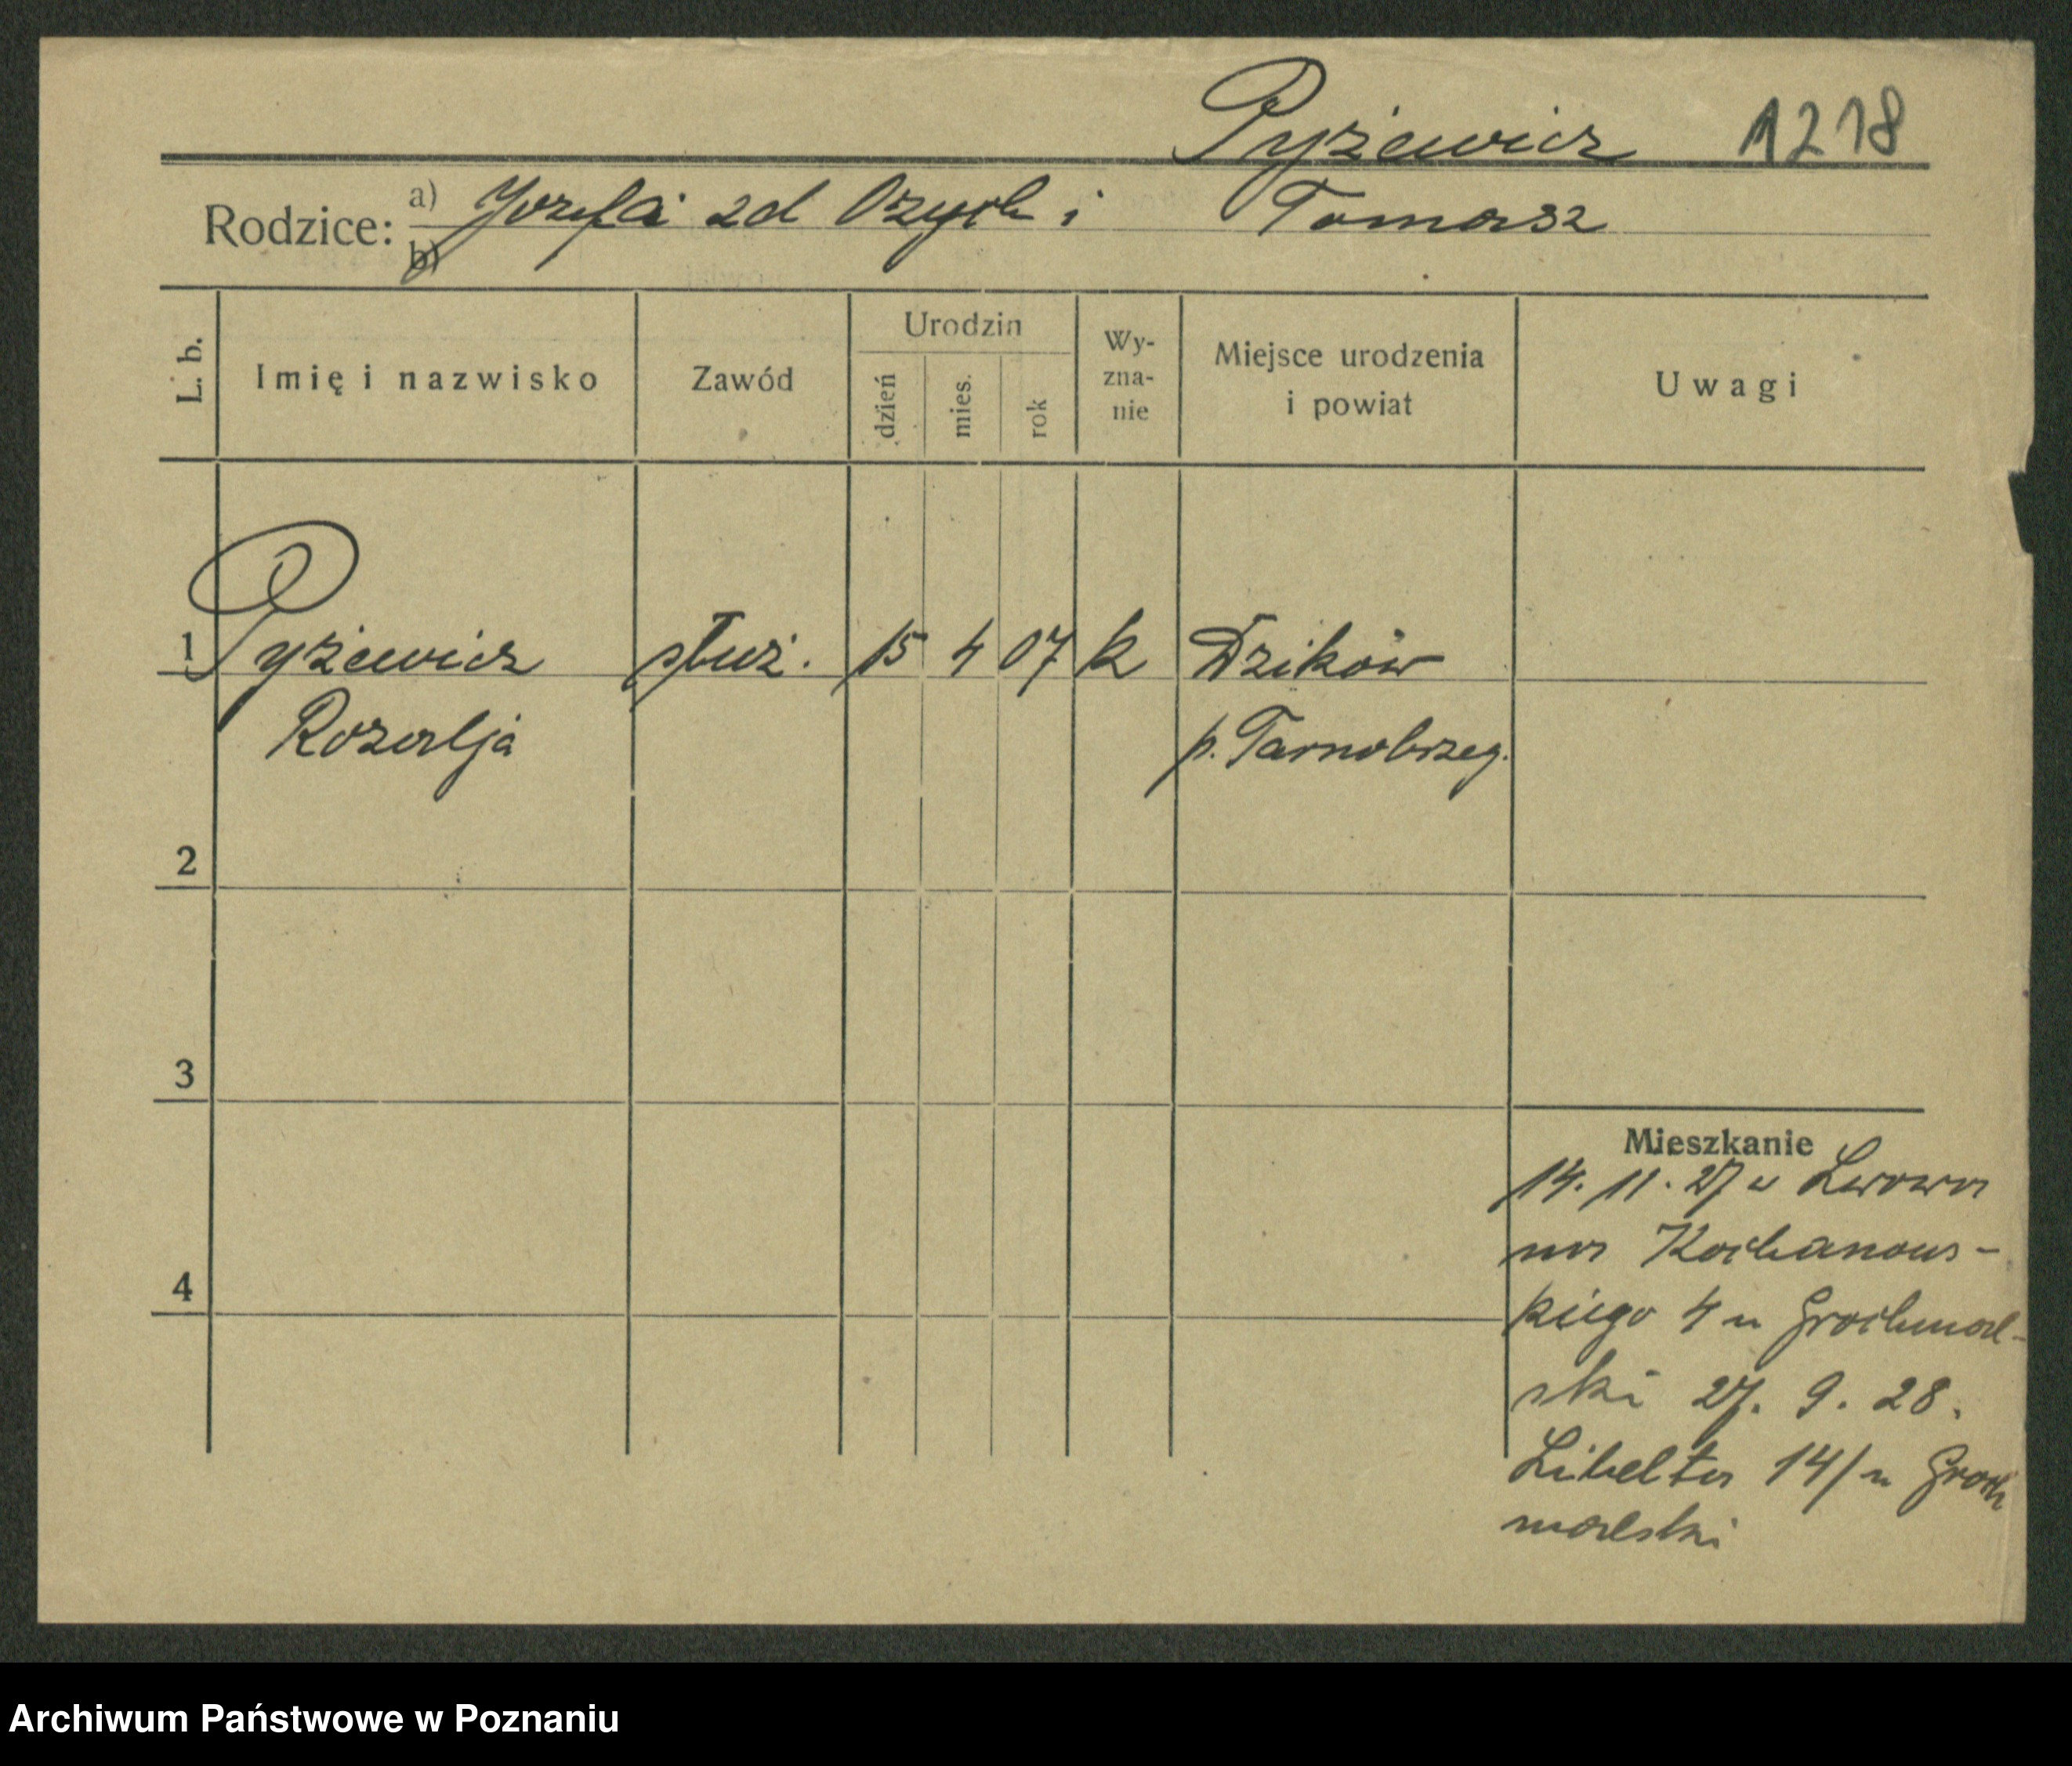 Pyżewicz 1218
Rodzice: a) Józefa zd Ożych i Tomasz
b)
L. b. Imię i nazwisko Zawód Urodzin dzień mies. rok Wy-
zna-
nie Miejsce urodzenia
i powiat Uwagi
1 Pyżewicz służ. 15 4 07 k Dzików
Rozalja p. Tarnobrzeg.
2
3
4
Mieszkanie
14. 11. 27 z Lwowa
na Kochanows-
kiego 4 u Grochmal-
ski 27. 9. 28.
Libelta 14/u Groch
malski
Archiwum Państwowe w Poznaniu